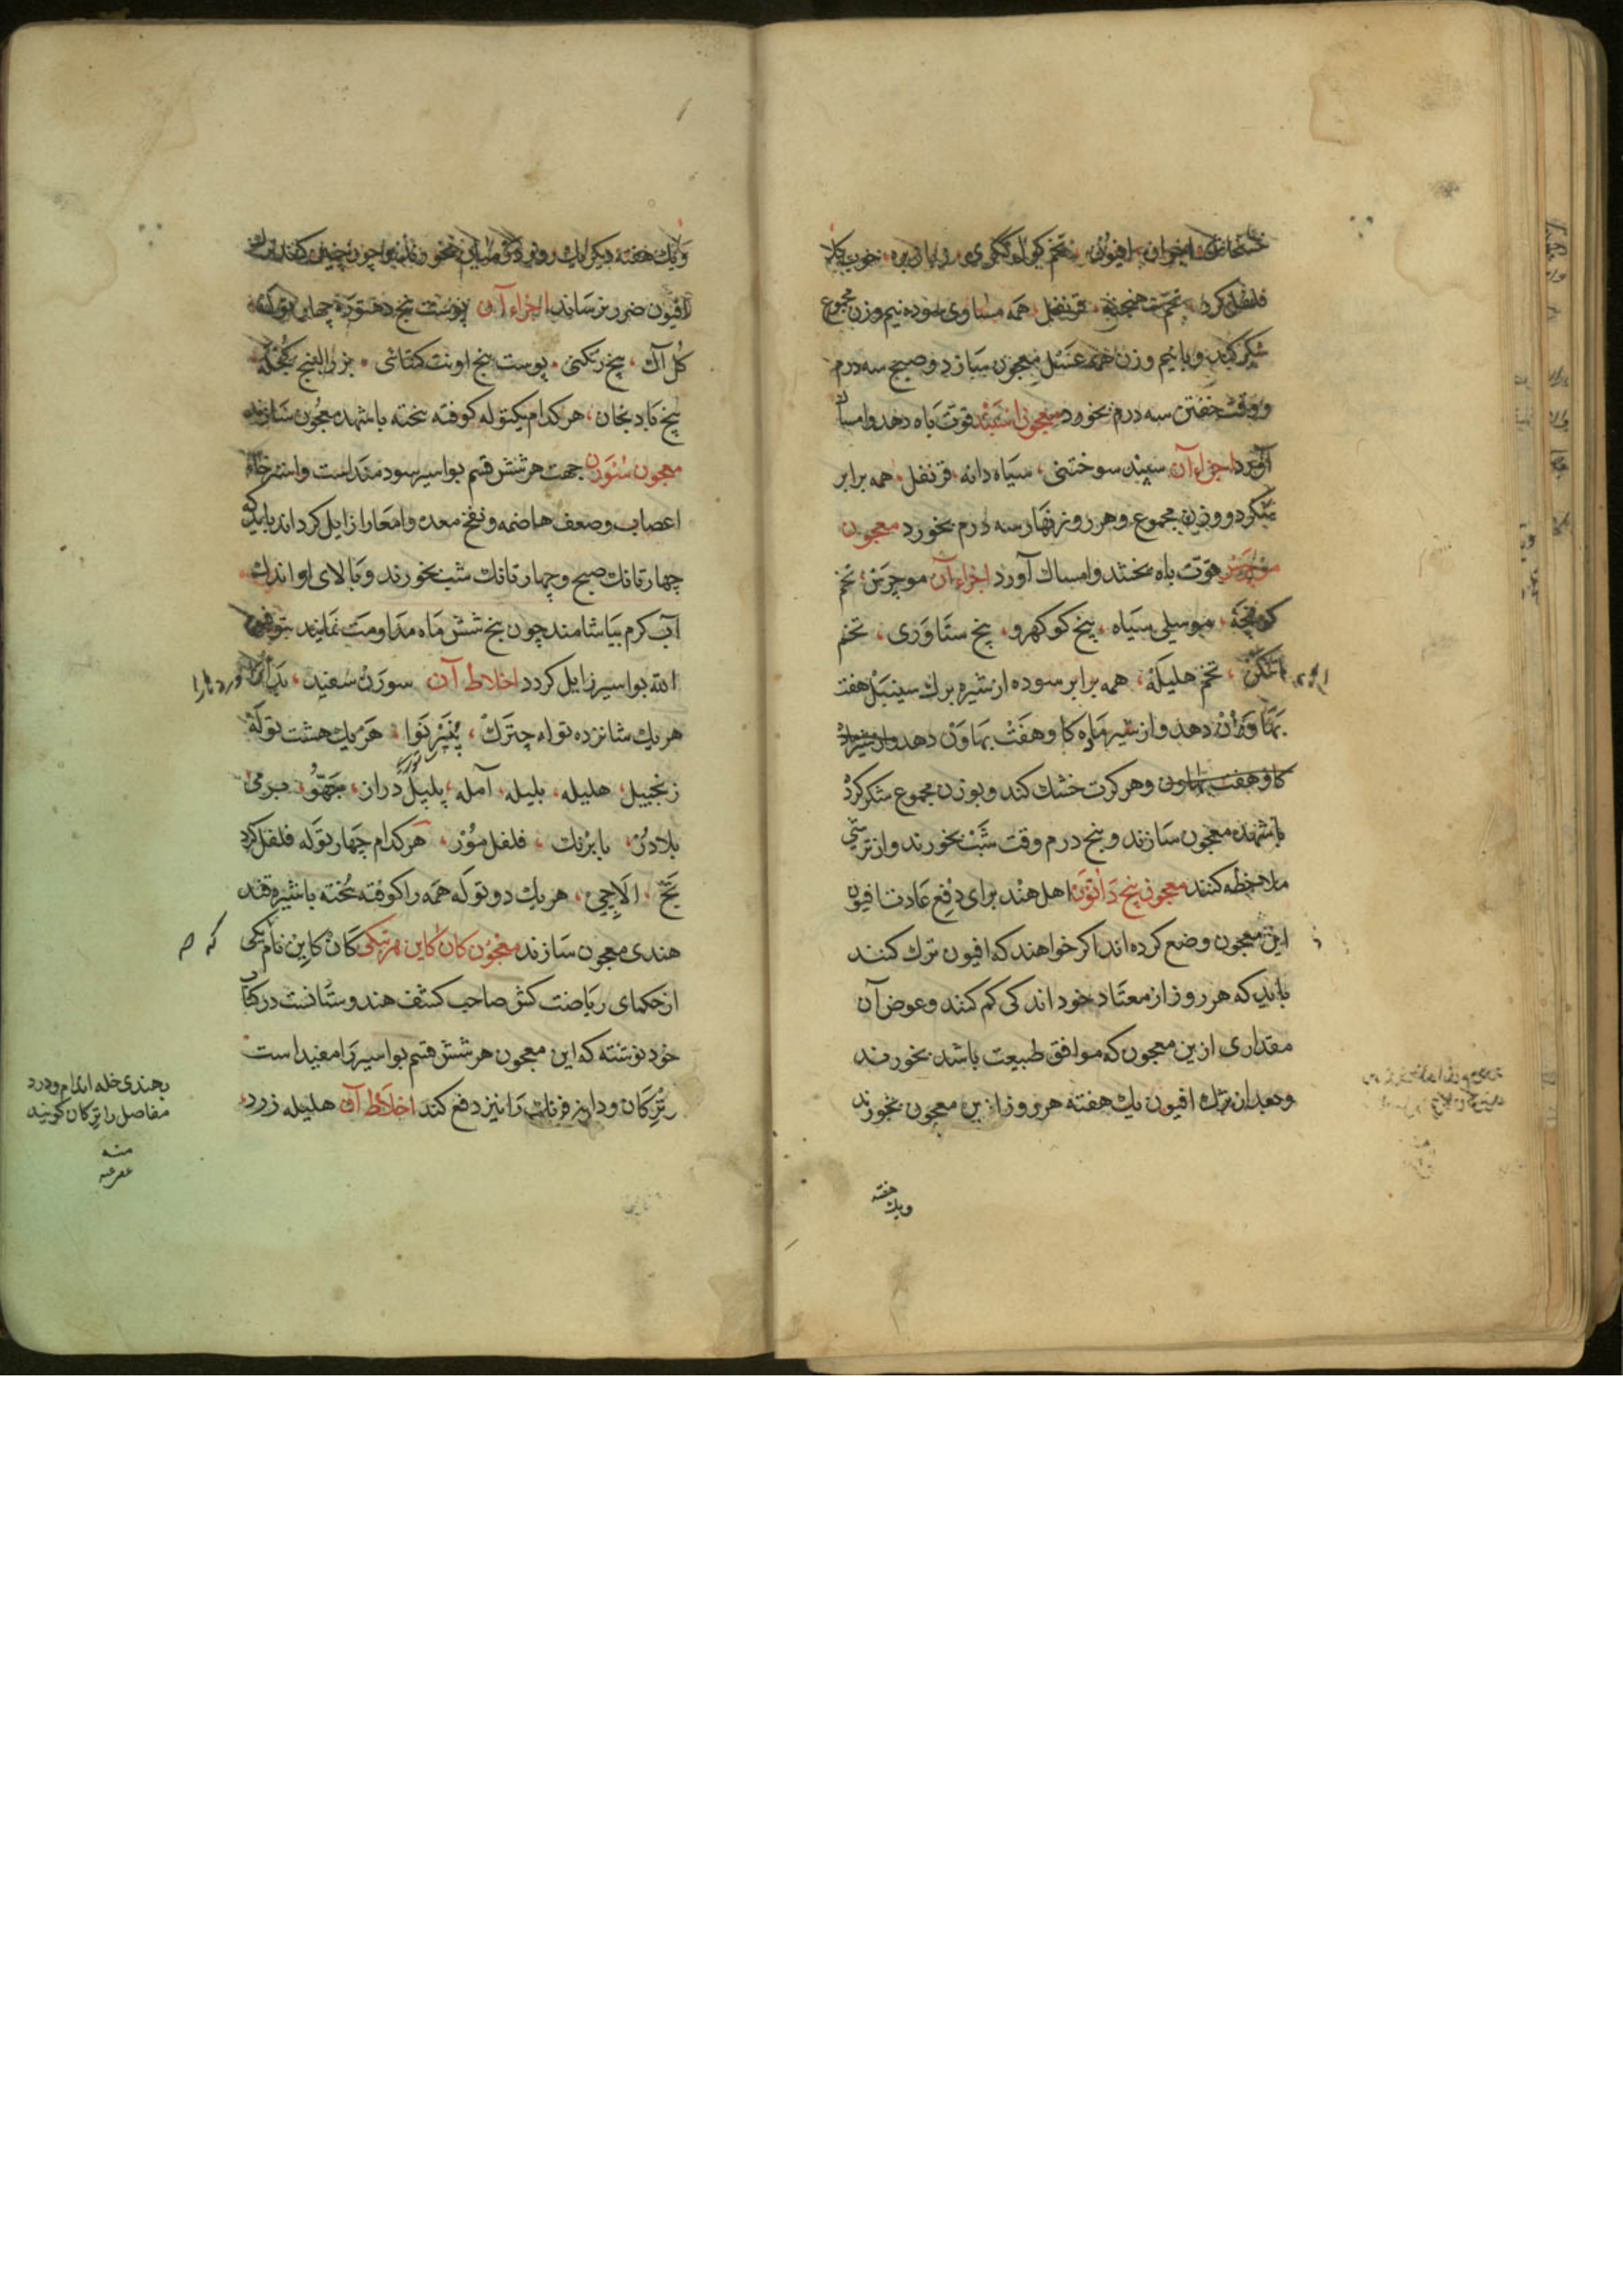 افیون تخم
فلفل کرد قرنفل همه مساوی سوده نیم وزن مجموع
شکر کند و با نیم وزن همه عسل معجون سازد و صبح سه درم
و وقت خفتن سه درم بخورد معجون اسپند قوت باه دهد و امساک
آورد اجزاء آن سپند سوختنی، سیاه دانه، قرنفل، همه برابر
شکر دو وزن مجموع و هر روز نهار سه درم بخورد معجون
موچرس قوت باه بخشد و امساک آورد اجزاء آن موچرس، تخم
کونچه، موسلی سیاه، بیخ کوکهرو، بیخ ستاوری، تخم
تخم هلیکه، همه برابر سوده از شیره برک سینبل هفت
بهاون دهد و از شیر ماده کاو هفت بهاون دهد
کاو هفت بهاون و هر کرت خشک کند و بوزن مجموع شکر کرد
با شهد معجون سازند و پنج درم وقت شب بخورند و از ترشی
ملاحظه کنند معجون بیخ داتون اهل هند برای دفع عادت افیون
این معجون وضع کرده اند اکر خواهند که افیون ترک کنند
باید که هر روز از معتاد خود اندکی کم کنند و عوض آن
مقداری ازین معجون که موافق طبیعت باشد بخورند
و بعد از ترک افیون یک هفته هر روز ازین معجون بخورند
و یک هفته
و یک هفته دیکر یک روز چون چنین کنند ترک
افیون ضرر نرساند اجزاء آن پوست بیخ دهتوره چهار توله
کل آک، بیخ رنکنی، پوست بیخ اونت کتائی، بزر البنج
بیخ بادنجان، هر کدام یکتوله کوفته بیخته با شهد معجون سازند
معجون سورن جهت هر شش قسم بواسیر سودمند است و استرخاء
اعصاب و ضعف هاضمه و نفخ معده و امعا را زایل کرداند باید که
چهار تانک صبح و چهار تانک شب بخورند و بالای او اندک
آب کرم بیاشامند چون پنج شش ماه مداومت نمایند بتوفیق
الله بواسیر زایل کردد اخلاط آن سورن سفید،
هر یک شانزده توله چترک، هر یک هشت توله
زنجبیل، هلیله، بلیله، آمله، پلپل دراز،
بلادر، بابرنک، فلفل مور، هر کدام چهار توله فلفل کرد
تج، الاچی، هر یک دو توله همه را کوفته بیخته با شیره قند
هندی معجون سازند معجون کان کاین کان کاین نام یکی
که
از حکمای ریاضت کش صاحب کشف هندوستانست در کتاب
خود نوشته که این معجون هر شش قسم بواسیر را مفید است
را نیز دفع کند اخلاط آن هلیله زرد
بهندی خله اندام و درد
مفاصل را ترکان کویند
منه